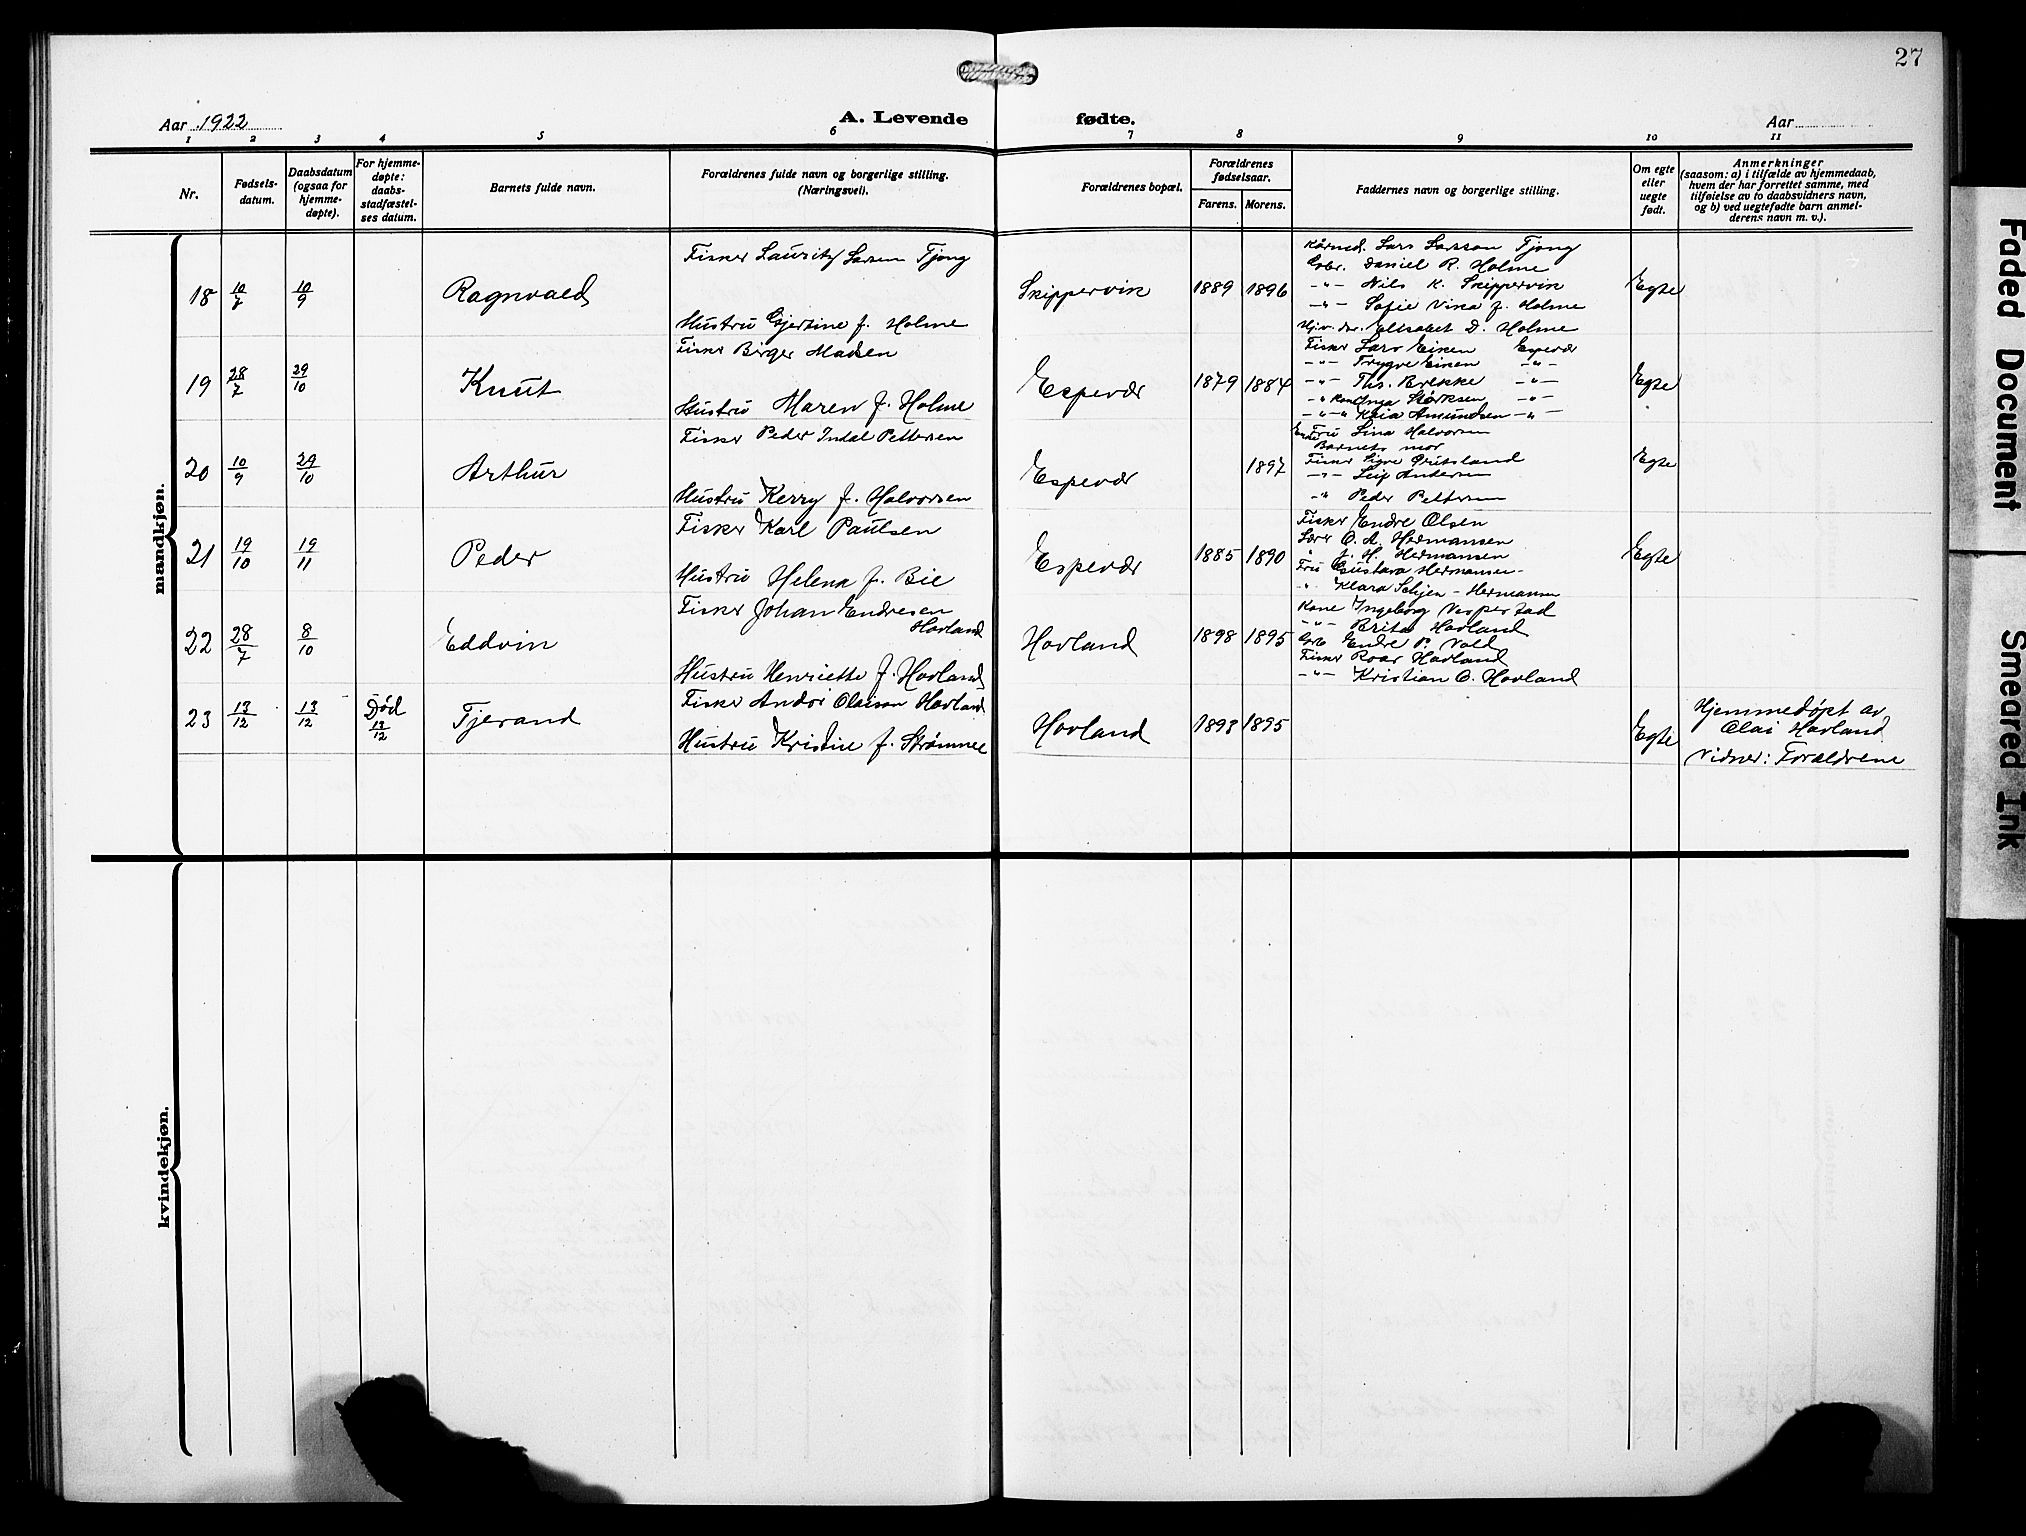 27
Aar 1922
A. Levende
fødte.
Aar
1 2 3 4 5 6 7 8 9 10 11
Nr.
Fødsels-
datum.
Daabsdatum
(ogsaa for
hjemme-
døpte).
For hjemme-
døpte:
daabs-
stadfæstel-
ses datum.
Barnets fulde navn.
Forældrenes fulde navn og borgerlige stilling.
(Næringsvei).
Forældrenes bopæl.
Forældrenes
fødselsaar.
Farens. Morens.
Faddernes navn og borgerlige stilling.
Om egte
eller
uegte
født.
Anmerkninger
(saasom: a) i tilfælde av hjemmedaab,
hvem der har forrettet samme, med
tilføielse av to daabsvidners navn,
og b) ved uegtefødte barn anmel-
derens navn m. v.).
mandkjøn.
18 10/7 10/9 Ragnvald
Fisker Lauritz Larsen Tjong
Hustru Gjertine f. Holme
Skippervik 1889 1896
Kårmd. Lars Larsson Tjong
Gbr. Daniel R. Holme
-"- Nils K. Skippervik
-"- Sofie Vika f. Holme
Elisabet D. Holme
Egte
19 28/7 29/10 Knut
Fisker Birger Madsen
Hustru Maren f. Holme
Espevær 1879 1884
Fisker Lars Eiken Espevær
-"- Trygve Eiken -"-
-"- Ths. Brekke -"-
-"- Inga Størksen -"-
-"-"- Kaia Amundsen -"-
Egte
20 10/9 29/10 Arthur
Fisker Peder Indal Pettersen
Hustru Kerry f. Halvorsen
Espevær 1897
Fru Lina Halvorsen
Barnets mor
Fisker Sigv. Gritsland
-"- Leif Andersen
-"- Peder Pettersen
Egte
21 19/10 19/11 Peder
Fisker Karl Paulsen
Hustru Helena f. Bie
Espevær 1885 1890
Fisker Endre Olsen
Lærer O. A. Hermansen
" J. H. Hermansen
Fru Gustava Hermansen
-"- Klara Seljen-Hermansen
Egte
22 28/7 8/10 Eddvin
Fisker Johan Endresen
Hovland
Hustru Henriette f. Hovland
Hovland 1898 1895
Kone Ingeborg Vespestad
-"- Brita Hovland
Gbr. Endre P. Vold
Fisker Roar Hovland
-"- Kristian O. Hovland
23 13/12 13/12 Død 13/12 Tjerand
Fisker Andor Olaison Hovland
Hustru Kristine f. Strømnee
Hovland 1893 1895
Egte
Hjemmedøpt av
Olai Hovland
Vidner: Foraldrene
kvindekjøn.
Faded Document
Smeared Ink